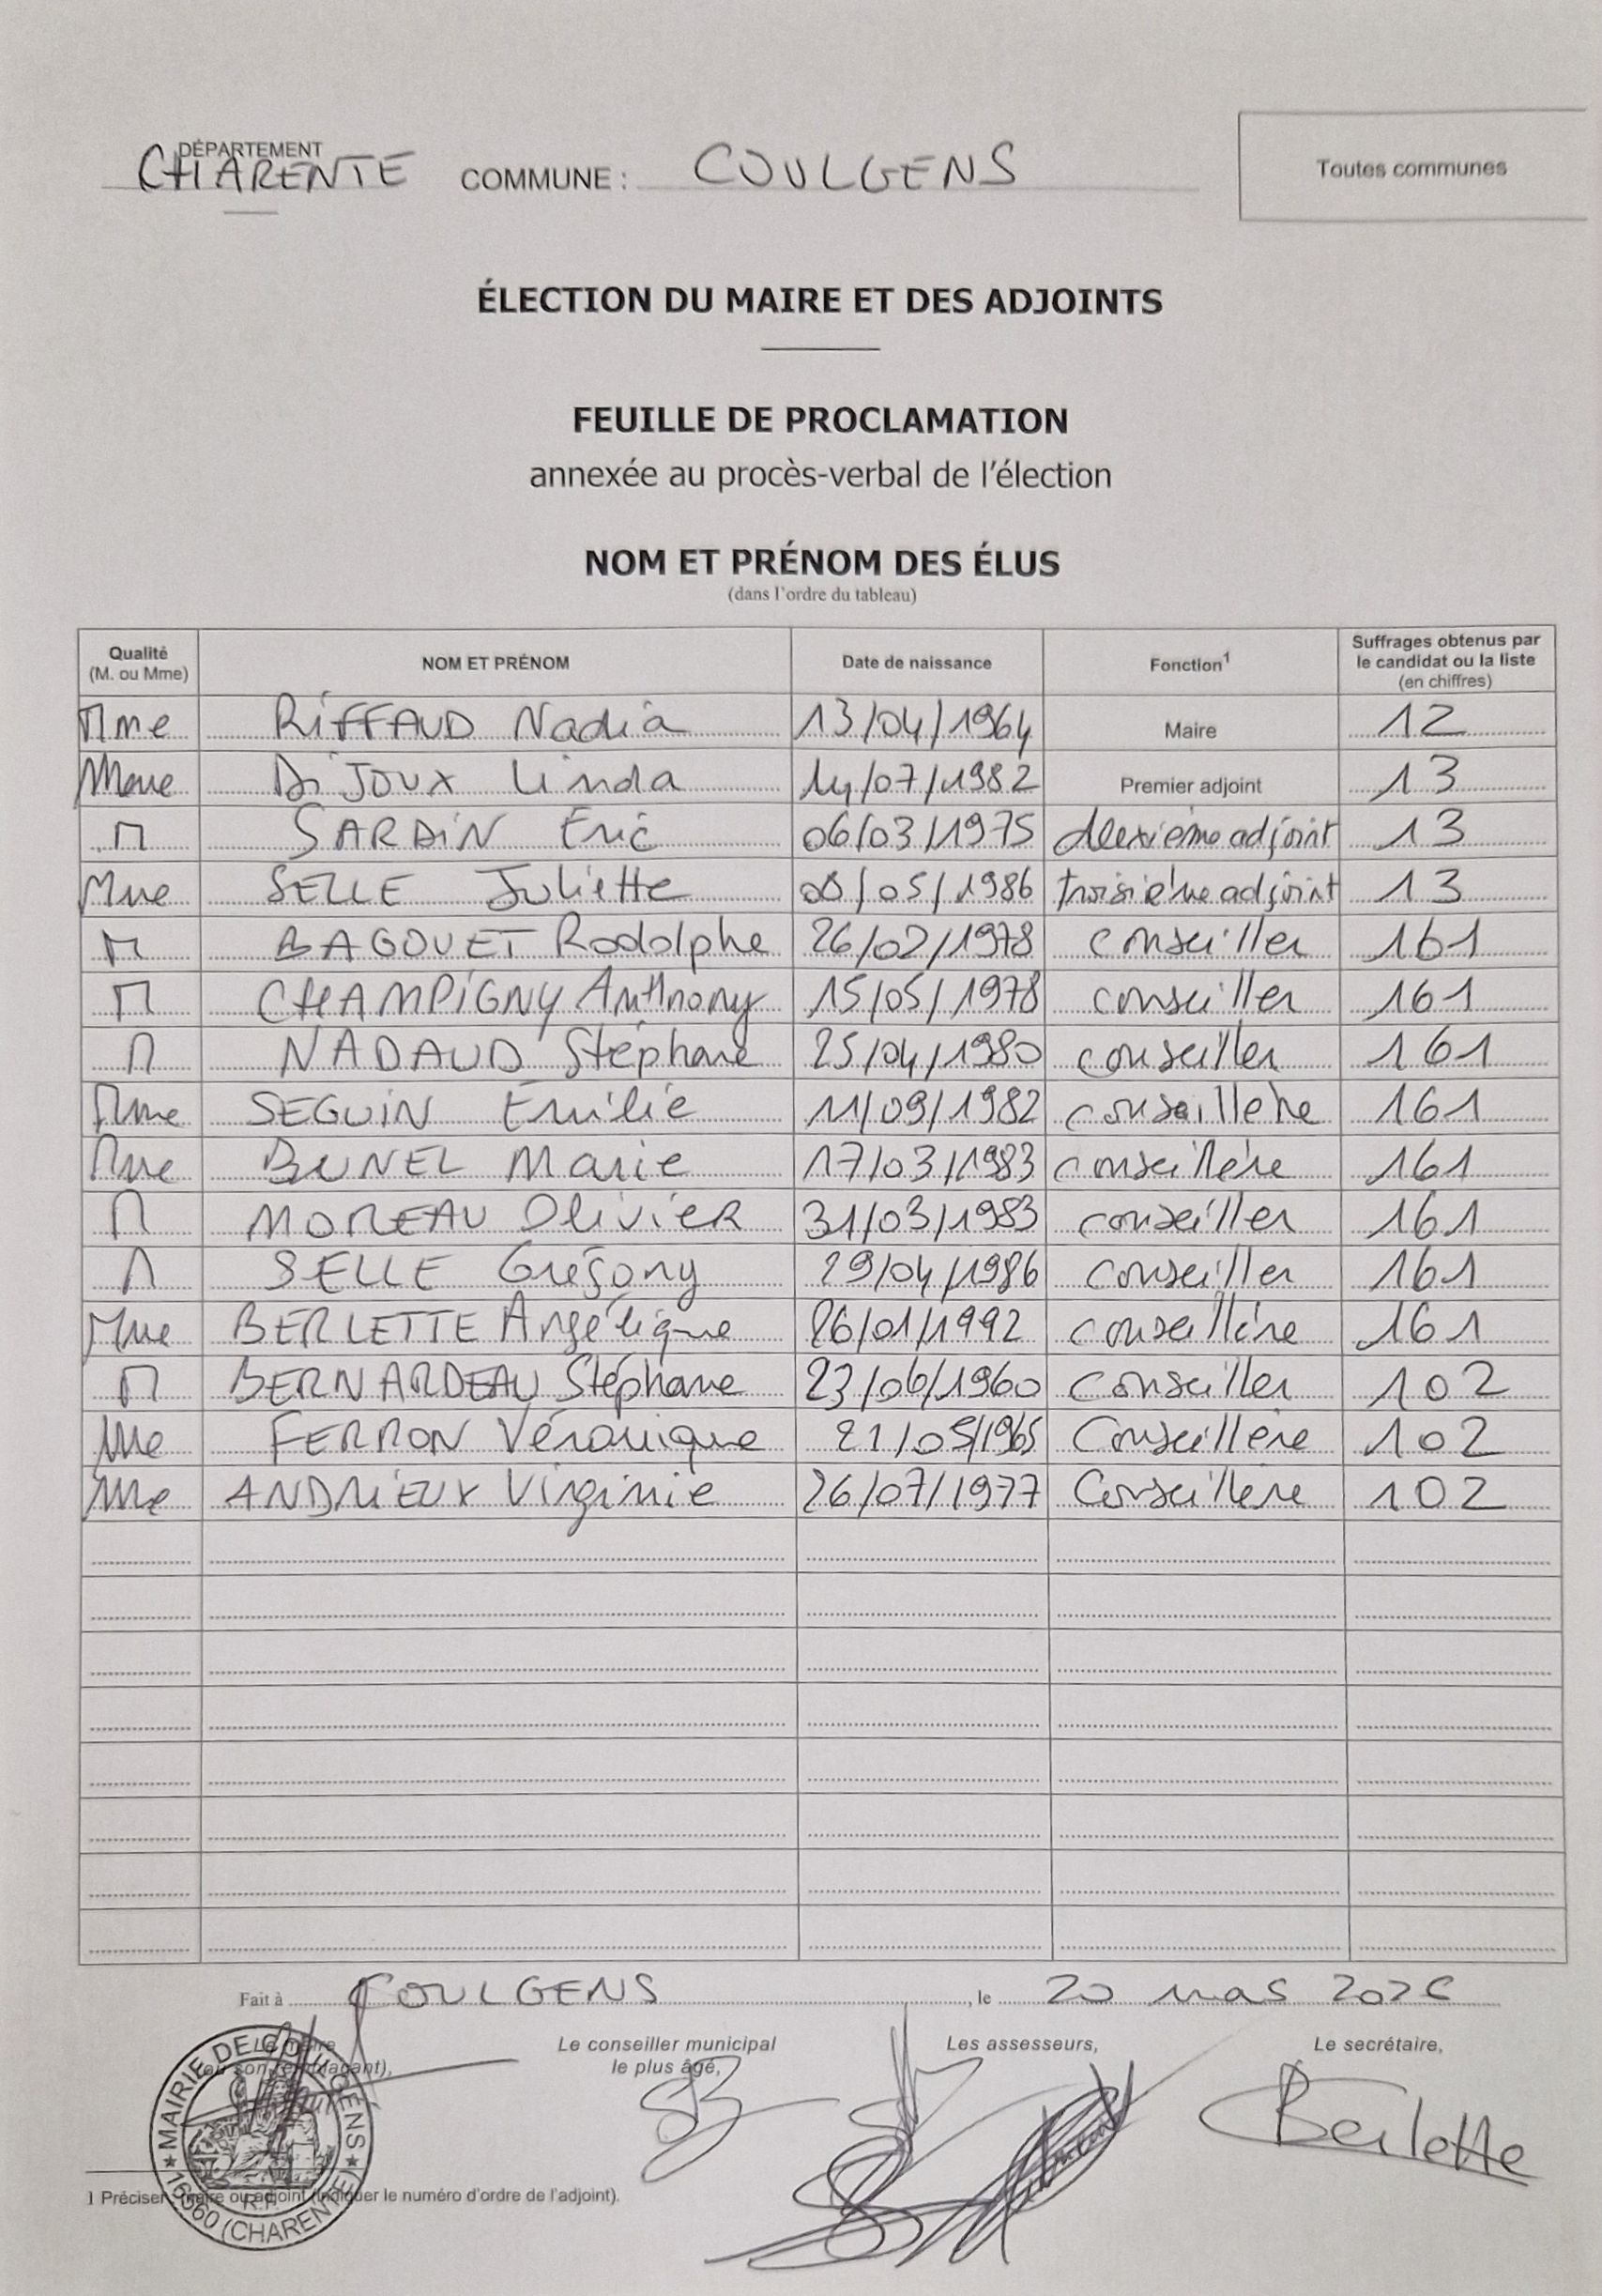 DÉPARTEMENT
CHARENTE COMMUNE : COULGENS
Toutes communes
ÉLECTION DU MAIRE ET DES ADJOINTS
FEUILLE DE PROCLAMATION
annexée au procès-verbal de l'élection
NOM ET PRÉNOM DES ÉLUS
(dans l'ordre du tableau)
Qualité (M. ou Mme) NOM ET PRÉNOM Date de naissance Fonction1 Suffrages obtenus par le candidat ou la liste (en chiffres)
Mme RIFFAUD Nadia 13/04/1964 Maire 12
Mme DIJOUX Linda 14/07/1982 Premier adjoint 13
M SARDIN Eric 06/03/1975 deuxième adjoint 13
Mme SELLE Juliette /05/1986 troisième adjoint 13
M BAGOUET Rodolphe 26/02/1978 conseiller 161
M CHAMPIGNY Anthnony 15/05/1978 conseiller 161
M NADAUD Stéphane 25/04/1980 conseiller 161
Mme SEGUIN Emilie 11/09/1982 conseillère 161
Mme BUNEL Marie 17/03/1983 conseillère 161
M MOREAU Olivier 31/03/1983 conseiller 161
M SELLE Grégory 29/04/1986 conseiller 161
Mme BERLETTE Angélique 26/01/1992 conseillère 161
M BERNARDEAU Stéphane 23/06/1960 conseiller 102
Mme FERRON Véronique 21/05/1965 Conseillère 102
Mme ANDRIEUX Virginie 26/07/1977 Conseillère 102
Fait à COULGENS, le 20 mars 2026
Le maire (ou son remplaçant),
Le conseiller municipal le plus âgé,
Les assesseurs,
Le secrétaire,
Berlette
MAIRIE DE COULGENS
R.F.
16560 (CHARENTE)
1 Préciser : maire ou adjoint (indiquer le numéro d'ordre de l'adjoint).